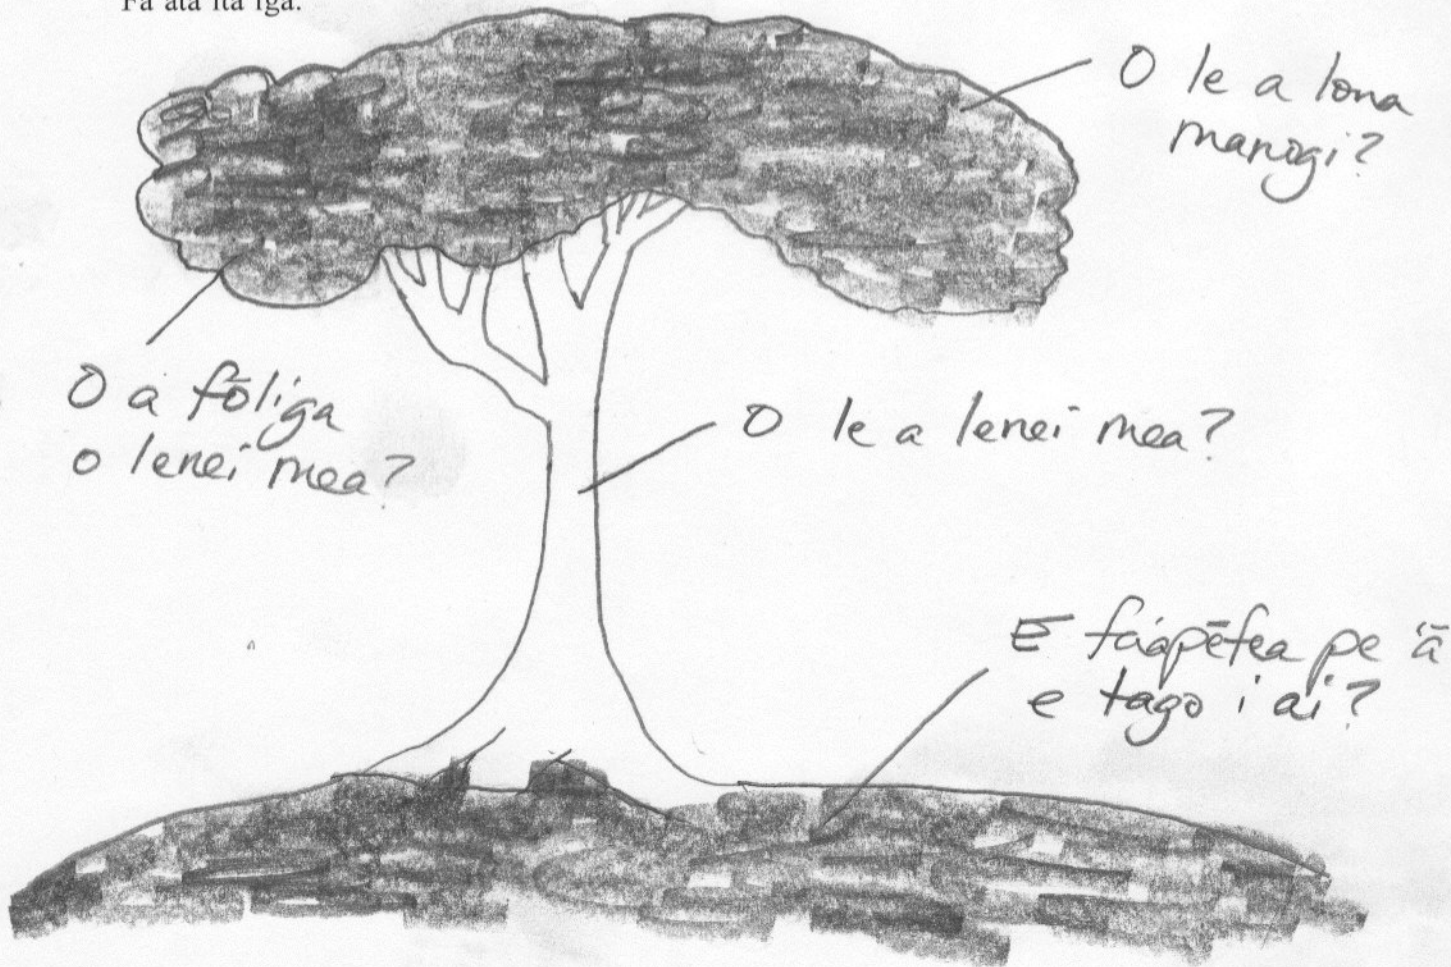 Fa'ata'ita'iga:
O le a lona
manogi?
O a foliga
o lenei mea?
O le a lenei mea?
E fa'apēfea pe 'ā
e tago i ai?